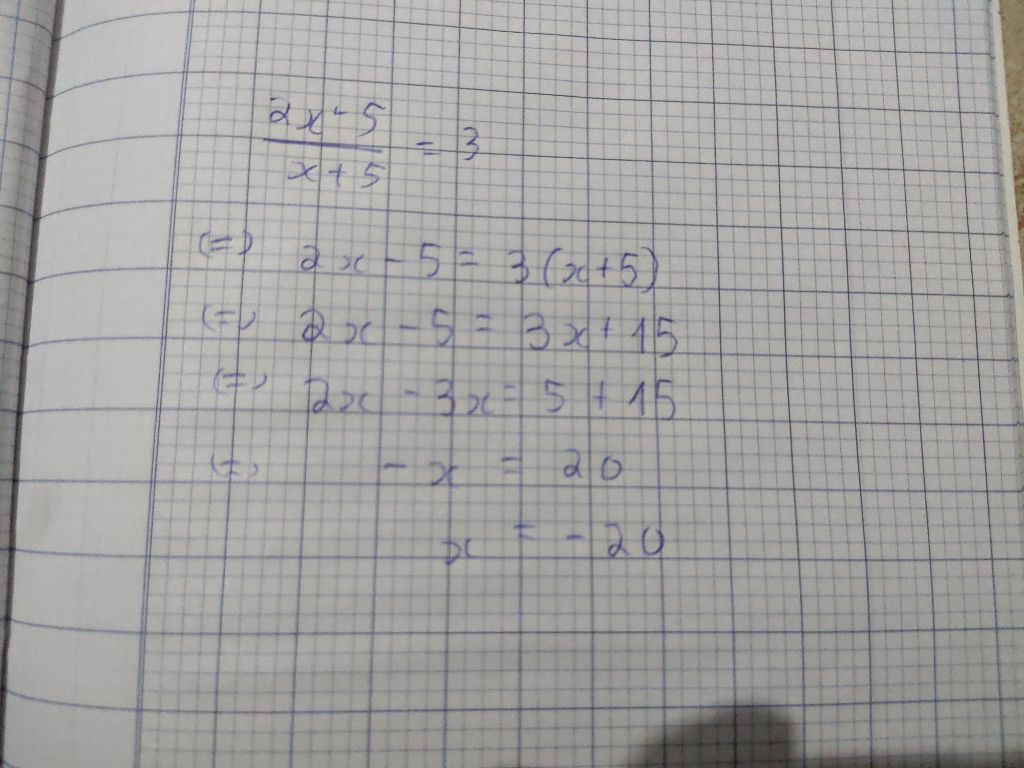 2x-5
x+5 = 3
(=) 2x - 5 = 3(x+5)
(=) 2x - 5 = 3x + 15
(=) 2x - 3x = 5 + 15
(=) - x = 20
x = - 20